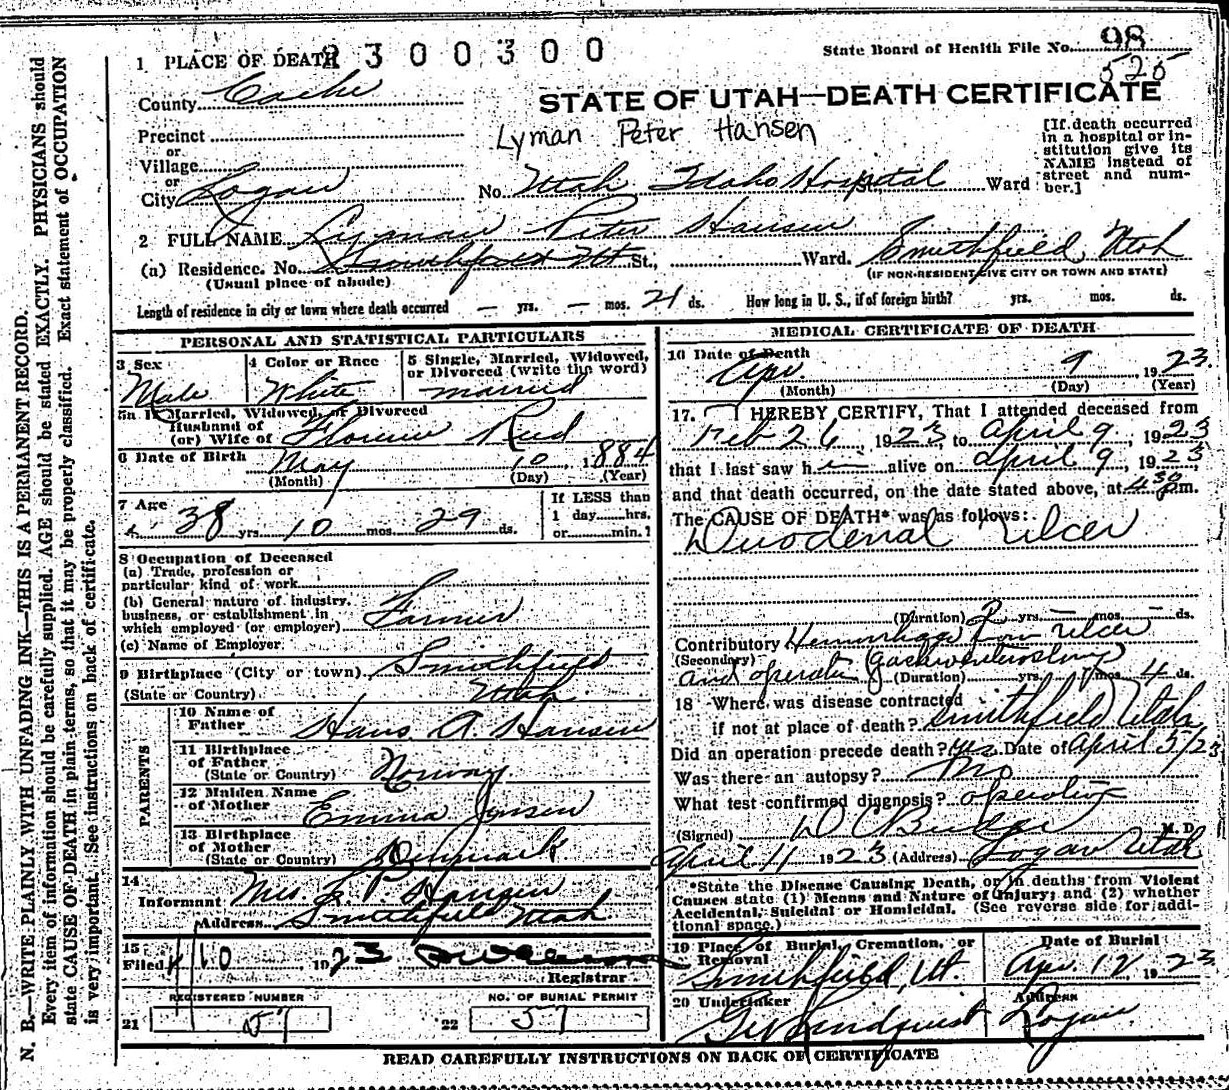 2300300
State Board of Health File No. 98
525
1 PLACE OF DEATH
County Cache
STATE OF UTAH—DEATH CERTIFICATE
Lyman Peter Hansen
Precinct
or
Village
or
City Logan
No. Utah Idaho Hospital Ward
[If death occurred
in a hospital or in-
stitution give its
NAME instead of
street and num-
ber.]
2 FULL NAME Lyman Peter Hansen
(a) Residence. No. Smithfield Ut St., Ward. Smithfield, Utah
(Usual place of abode)
(IF NON-RESIDENT GIVE CITY OR TOWN AND STATE)
Length of residence in city or town where death occurred — yrs. — mos. 21 ds. How long in U. S., if of foreign birth? yrs. mos. ds.
PERSONAL AND STATISTICAL PARTICULARS
3 Sex
Male
4 Color or Race
White
5 Single, Married, Widowed,
or Divorced (write the word)
married
5a If Married, Widowed, or Divorced
Husband of
(or) Wife of Florence Reed
6 Date of Birth May 10 1884
(Month) (Day) (Year)
7 Age
38 yrs. 10 mos. 29 ds.
If LESS than
1 day hrs.
or min.?
8 Occupation of Deceased
(a) Trade, profession or
particular kind of work
(b) General nature of industry,
business, or establishment in
which employed (or employer)
Farmer
(c) Name of Employer
9 Birthplace (City or town) Smithfield
(State or Country) Utah
PARENTS
10 Name of
Father Hans A. Hansen
11 Birthplace
of Father
(State or Country) Norway
12 Maiden Name
of Mother Emma Jensen
13 Birthplace
of Mother
(State or Country) Denmark
14
Informant Mrs. L. P. Hansen
Address Smithfield Utah
15
Filed 4/10 1923
Registrar
REGISTERED NUMBER
21 57
NO. OF BURIAL PERMIT
22 57
MEDICAL CERTIFICATE OF DEATH
16 Date of Death
Apr 9 1923
(Month) (Day) (Year)
17. I HEREBY CERTIFY, That I attended deceased from
Feb 26, 1923 to April 9, 1923
that I last saw him alive on April 9, 1923
and that death occurred, on the date stated above, at 4:30 p.m.
The CAUSE OF DEATH* was as follows:
Duodenal Ulcer
(Duration) 2 yrs. — mos. — ds.
Contributory Hemorrhage from Ulcer
(Secondary)
and operation (Gastroenterostomy)
(Duration) yrs. mos. 4 ds.
18 Where was disease contracted
if not at place of death? Smithfield Utah
Did an operation precede death? yes Date of April 5/23
Was there an autopsy? No
What test confirmed diagnosis? operation
(Signed) D C Budge M. D.
April 11 1923 (Address) Logan Utah
*State the Disease Causing Death, or in deaths from Violent
Causes state (1) Means and Nature of Injury; and (2) whether
Accidental, Suicidal or Homicidal. (See reverse side for addi-
tional space.)
19 Place of Burial, Cremation, or
Removal
Smithfield, Ut.
Date of Burial
Apr. 12 1923
20 Undertaker
Lindquist
Address
Logan
READ CAREFULLY INSTRUCTIONS ON BACK OF CERTIFICATE
N. B.—WRITE PLAINLY WITH UNFADING INK—THIS IS A PERMANENT RECORD.
Every item of information should be carefully supplied. AGE should be stated EXACTLY. PHYSICIANS should
state CAUSE OF DEATH in plain terms, so that it may be properly classified. Exact statement of OCCUPATION
is very important. See instructions on back of certificate.